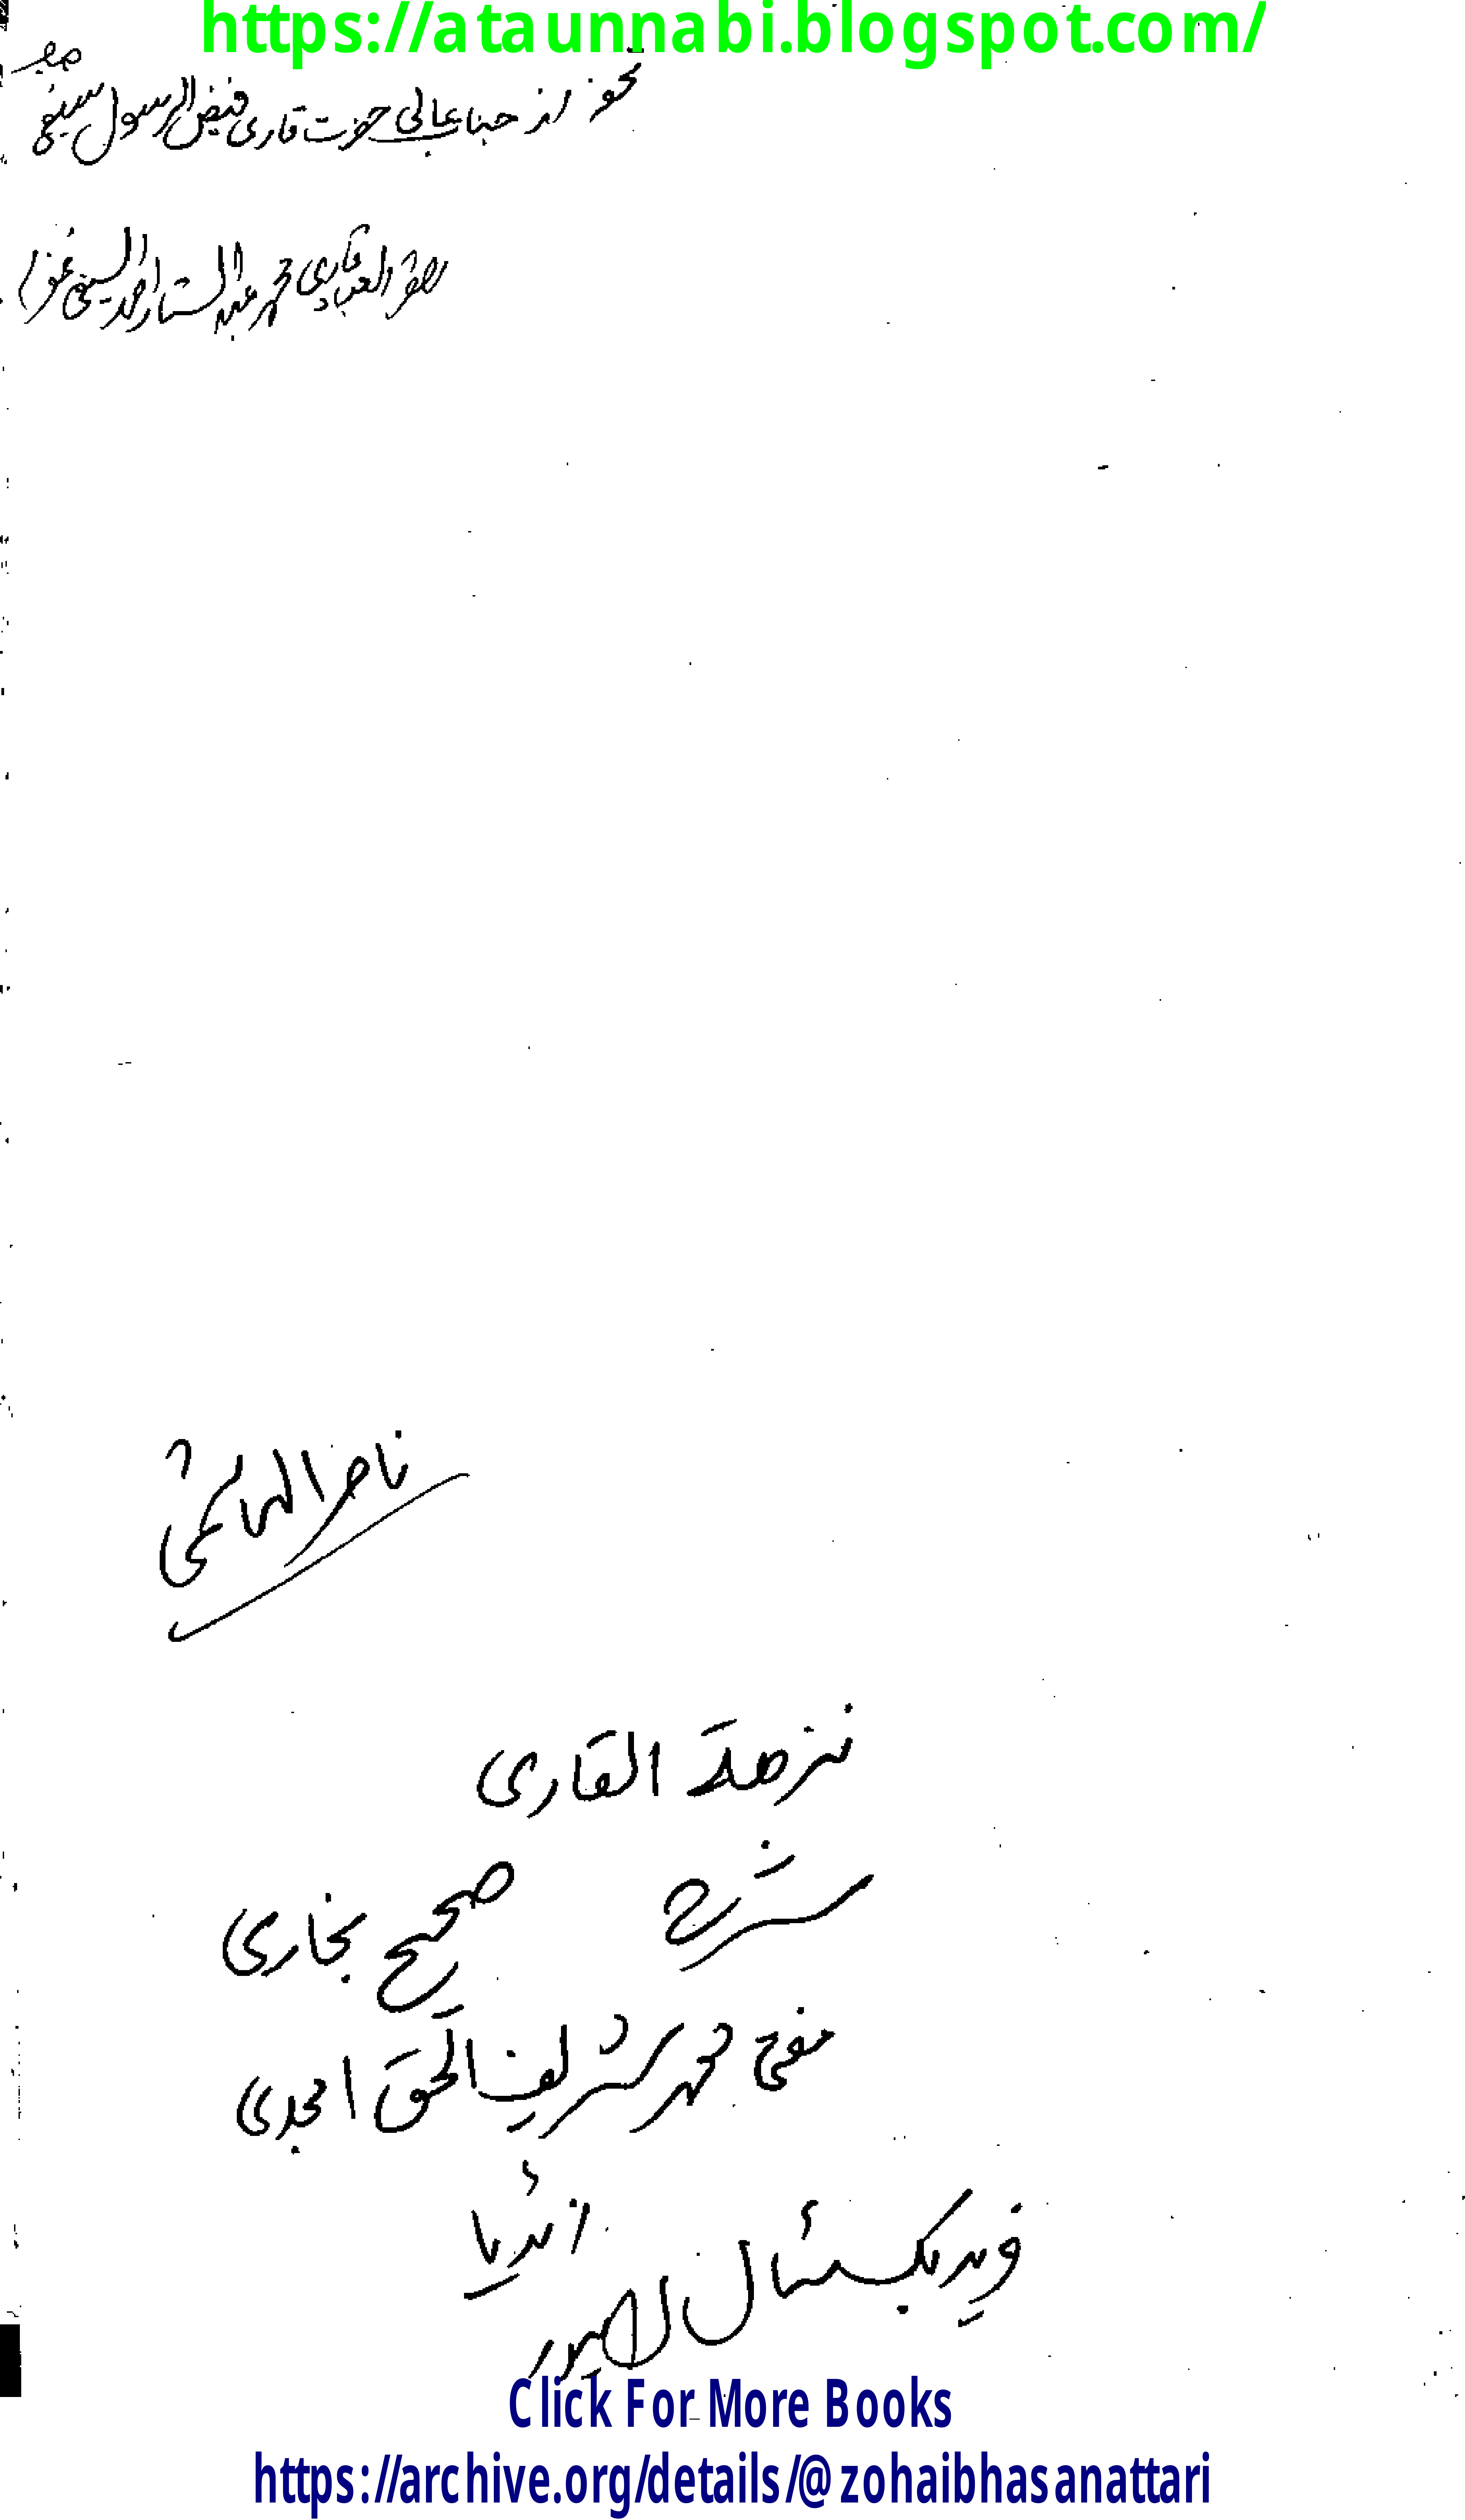 https://ataunnabi.blogspot.com/
از جناب عالی حضرت قاری فیض الرسول سیفی
محمد عبد الستار احمد سیفی
ناصر الہاشمی
نزھۃ القاری
شرح صحیح بخاری
مفتی محمد شریف الحق امجدی
انڈیا
فرید بکسٹال لاہور
Click For More Books
https://archive.org/details/@zohaibhasanattari